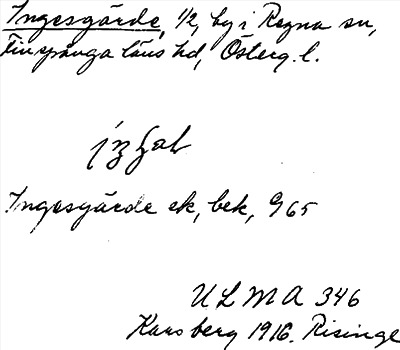 Ingesgärde, 1/2, by i Regna sn,
Finspånga läns hd, Österg. l.
Ingesgärde ek, bek, G 65
ULMA 346
Karsberg 1916. Risinge